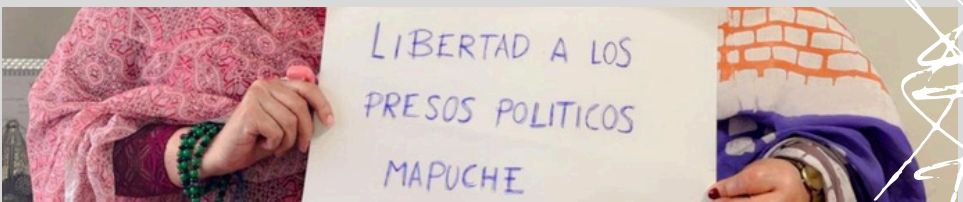 LIBERTAD A LOS
PRESOS POLITICOS
MAPUCHE